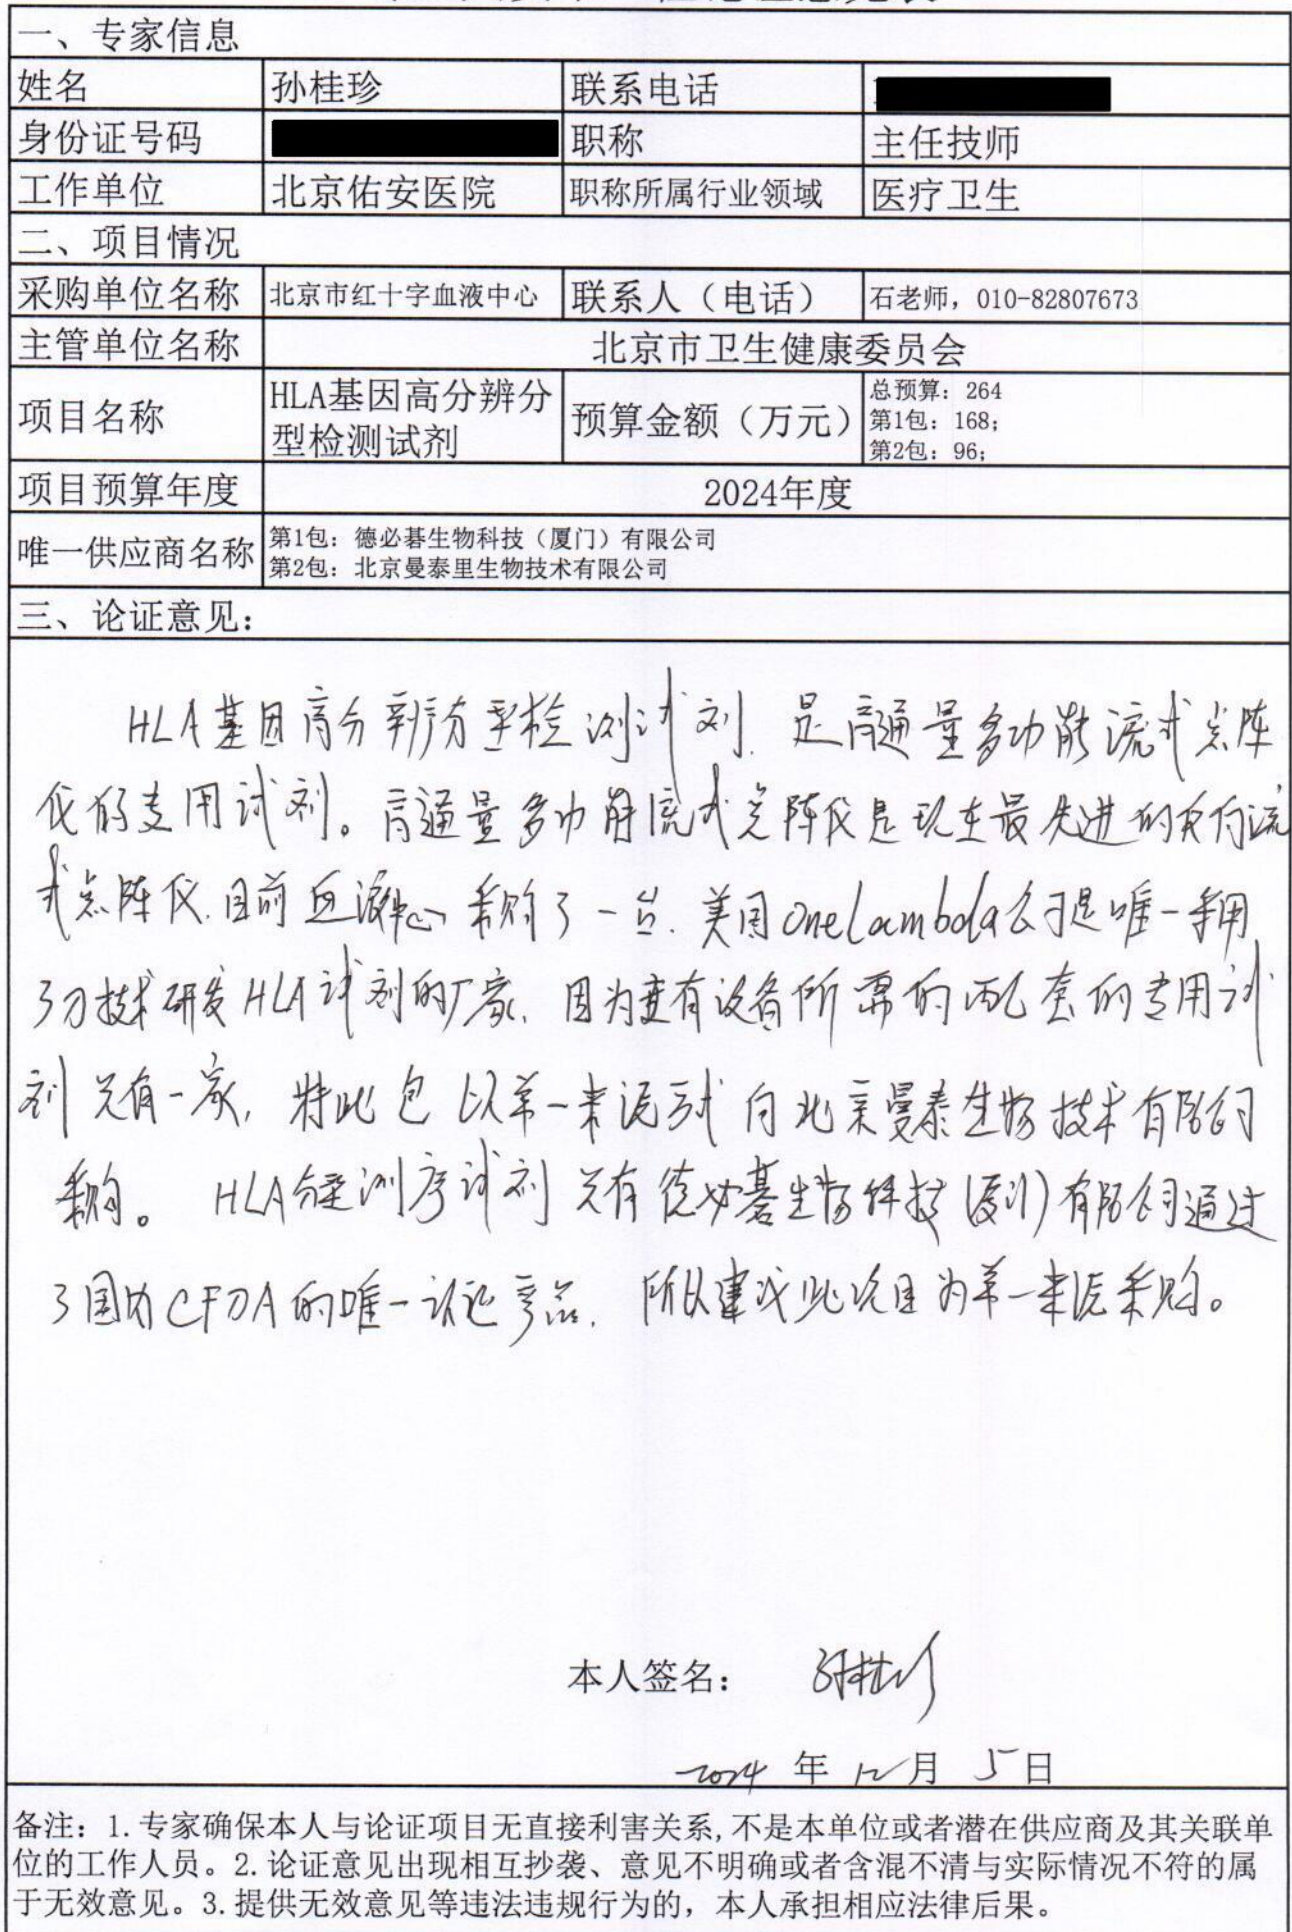 一、专家信息
姓名 孙桂珍 联系电话
身份证号码 职称 主任技师
工作单位 北京佑安医院 职称所属行业领域 医疗卫生
二、项目情况
采购单位名称 北京市红十字血液中心 联系人（电话） 石老师，010-82807673
主管单位名称 北京市卫生健康委员会
项目名称 HLA基因高分辨分型检测试剂 预算金额（万元） 总预算：264
第1包：168；
第2包：96；
项目预算年度 2024年度
唯一供应商名称 第1包：德必碁生物科技（厦门）有限公司
第2包：北京曼泰里生物技术有限公司
三、论证意见：
HLA基因高分辨分型检测试剂，是高通量多功能流式点阵
仪的专用试剂。高通量多功能流式点阵仪是现在最先进的流
式点阵仪，目前血液中心采购了一台，美国OneLambda公司是唯一采用
了技术研发HLA试剂的厂家，因为现有设备所需的配套的专用试
剂只有一家，特此包以单一来源方式向北京曼泰生物技术有限公司
采购。HLA分型测序试剂只有德必碁生物科技（厦门）有限公司通过
了国内CFDA的唯一认证产品，所以建议此项目为单一来源采购。
本人签名： 孙桂珍
2024 年 12 月 5 日
备注：1.专家确保本人与论证项目无直接利害关系,不是本单位或者潜在供应商及其关联单
位的工作人员。2.论证意见出现相互抄袭、意见不明确或者含混不清与实际情况不符的属
于无效意见。3.提供无效意见等违法违规行为的，本人承担相应法律后果。